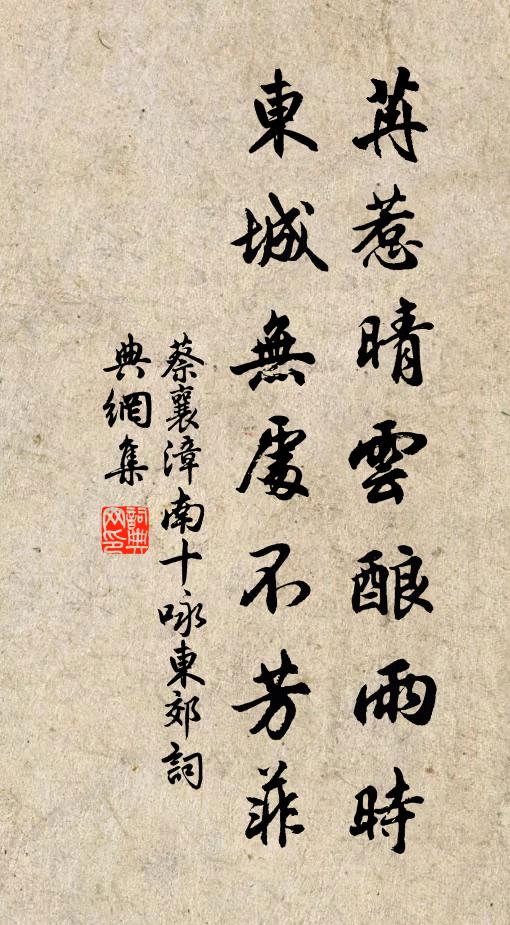 苒惹晴雲酿雨時
東城無處不芳菲
蔡襄漳南十咏東郊詞
典網集
詞典
网印